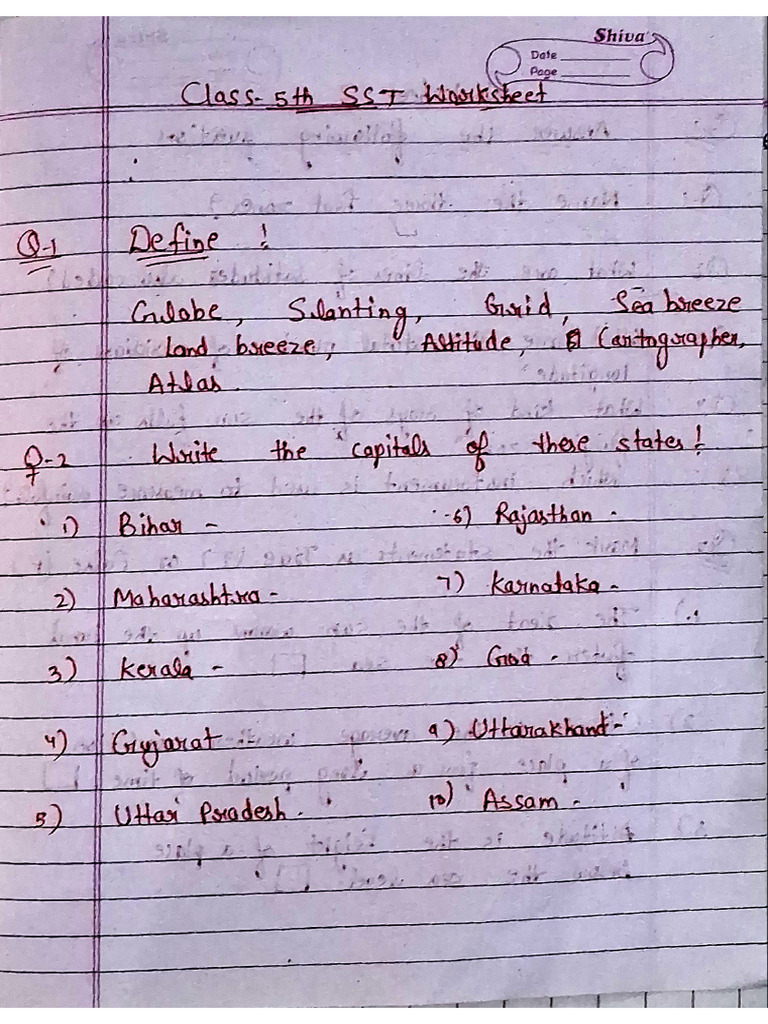 Shiva
Date
Page
Class- 5th SST Worksheet
Q-1 Define !
Globe, Slanting, Grid, Sea breeze
land breeze, Altitude, Cartographer,
Atlas.
Q-2 Write the capitals of these states!
1) Bihar - 6) Rajasthan -
2) Maharashtra - 7) Karnataka -
3) Kerala - 8) Goa -
4) Gujarat 9) Uttarakhand-
5) Uttar Pradesh - 10) Assam -